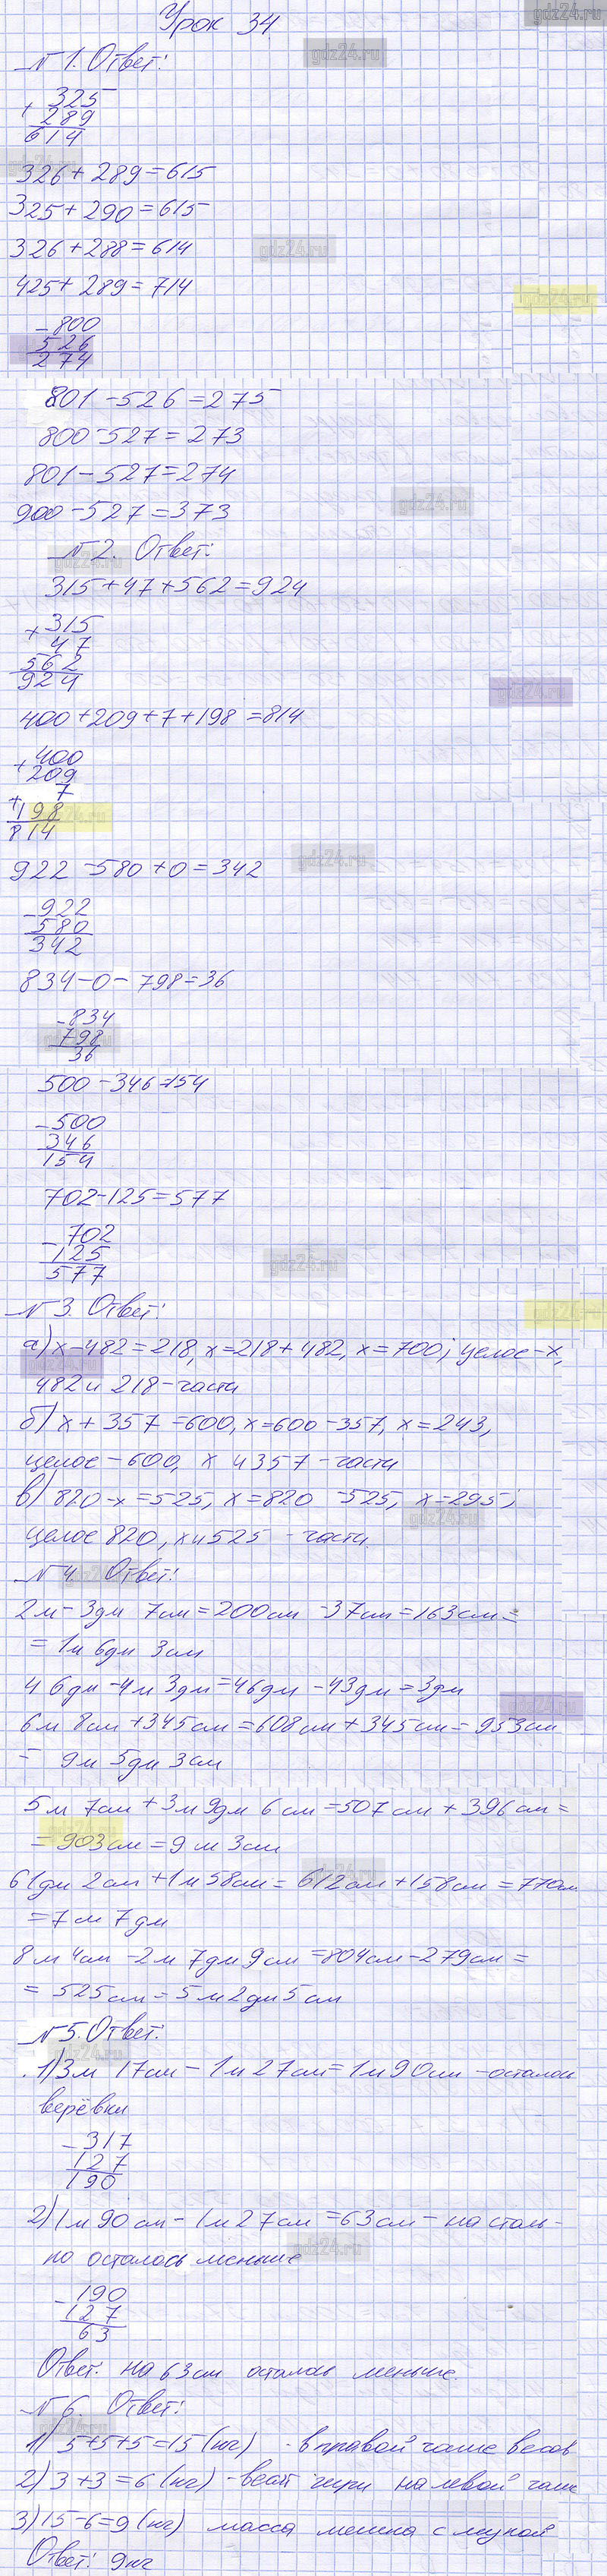 Урок 34
gdz24.ru
gdz24.ru
№ 1. Ответ:
+ 325
289
614
gdz24.ru
326 + 289 = 615
325 + 290 = 615
326 + 288 = 614
gdz24.ru
425 + 289 = 714
gdz24.ru
- 800
526
274
801 - 526 = 275
800 - 527 = 273
801 - 527 = 274
900 - 527 = 373
gdz24.ru
№ 2. Ответ:
315 + 47 + 562 = 924
+ 315
47
562
924
gdz24.ru
400 + 209 + 7 + 198 = 814
+ 400
209
+ 7
198
814
922 - 580 + 0 = 342
gdz24.ru
- 922
580
342
834 - 0 - 798 = 36
- 834
798
36
500 - 346 = 154
- 500
346
154
702 - 125 = 577
- 702
125
577
gdz24.ru
№ 3. Ответ:
а) x - 482 = 218, x = 218 + 482, x = 700; целое - x,
482 и 218 - части
б) x + 357 = 600, x = 600 - 357, x = 243,
целое - 600, x и 357 - части
в) 820 - x = 525, x = 820 - 525, x = 295;
целое 820, x и 525 - части.
gdz24.ru
№ 4. Ответ:
2 м - 3 дм 7 см = 200 см - 37 см = 163 см =
= 1 м 6 дм 3 см
46 дм - 4 м 3 дм = 46 дм - 43 дм = 3 дм
6 м 8 см + 345 см = 608 см + 345 см = 953 см
= 9 м 5 дм 3 см
5 м 7 см + 3 м 9 дм 6 см = 507 см + 396 см =
= 903 см = 9 м 3 см
61 дм 2 см + 1 м 58 см = 612 см + 158 см = 770 см
= 7 м 7 дм
8 м 4 см - 2 м 7 дм 9 см = 804 см - 279 см =
= 525 см = 5 м 2 дм 5 см
№ 5. Ответ:
1) 3 м 17 см - 1 м 27 см = 1 м 90 см - осталось
верёвки
- 317
127
190
2) 1 м 90 см - 1 м 27 см = 63 см - на столь-
ко осталось меньше
gdz24.ru
- 190
127
63
Ответ: на 63 см осталось меньше.
№ 6. Ответ:
1) 5 + 5 + 5 = 15 (кг) - в правой чаше весов
2) 3 + 3 = 6 (кг) - весят гири на левой чаше
3) 15 - 6 = 9 (кг) масса мешка с мукой
Ответ: 9 кг